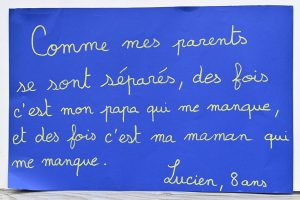 Comme mes parents
se sont séparés, des fois
c'est mon papa qui me manque,
et des fois c'est ma maman qui
me manque.
Lucien, 8 ans